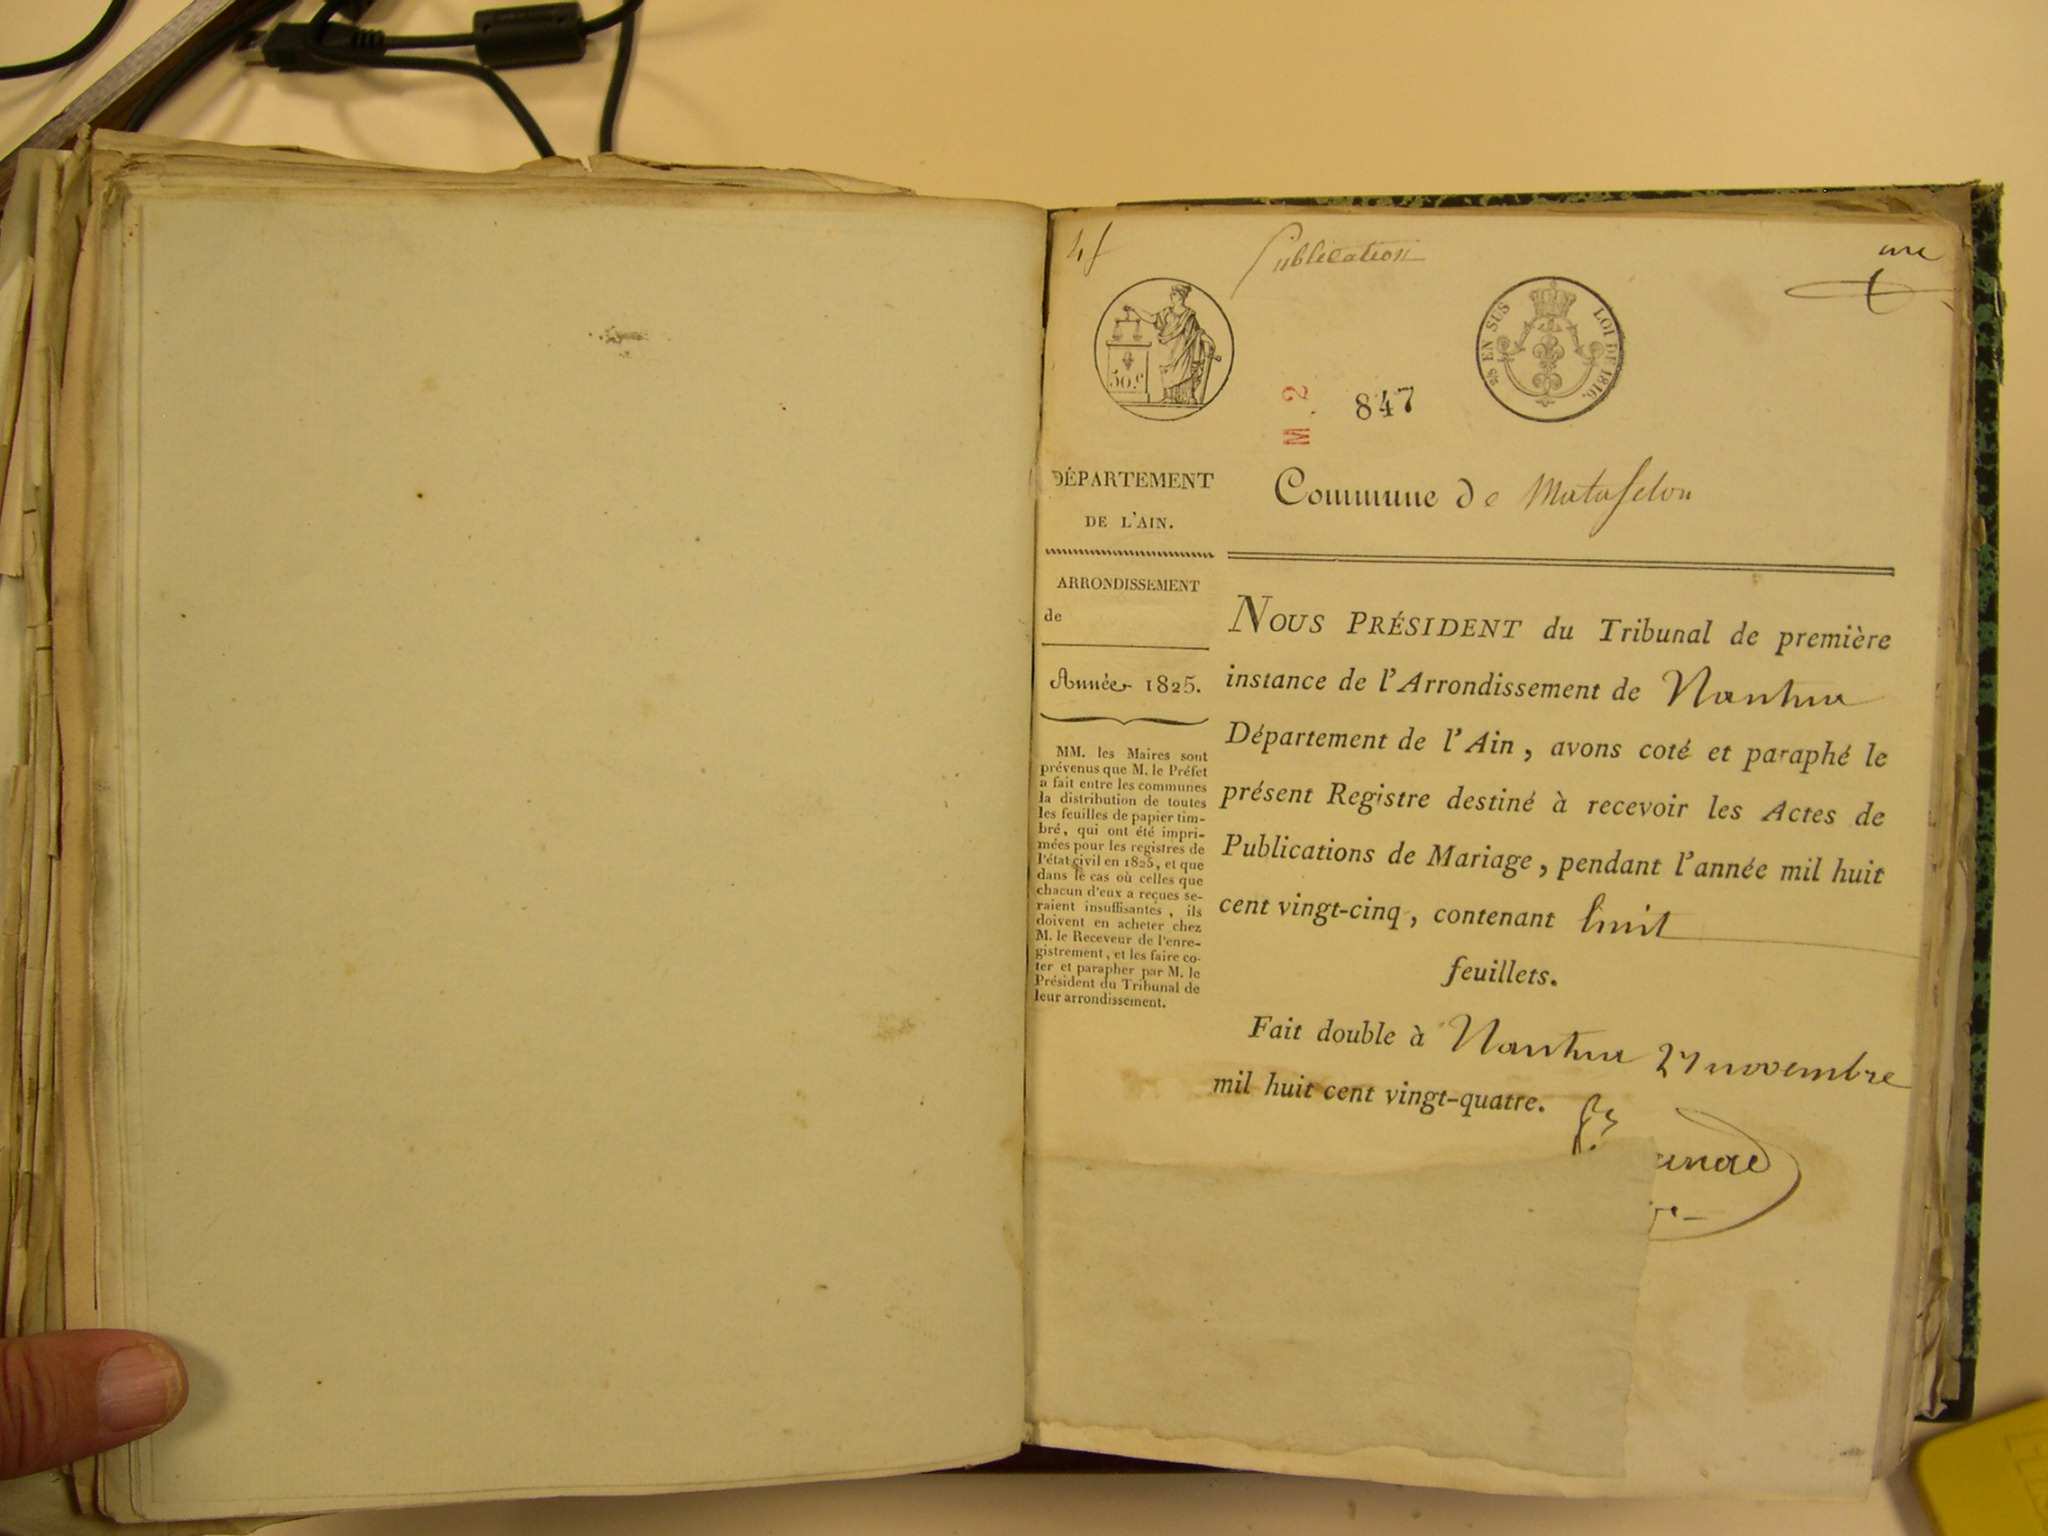 Publication
une
50.c
EN SUS LOI DE 1816.
M.2
847
DÉPARTEMENT
DE L'AIN.
Commune de Matafelon
ARRONDISSEMENT
de
Année 1825.
MM. les Maires sont
prévenus que M. le Préfet
a fait entre les communes
la distribution de toutes
les feuilles de papier tim-
bré, qui ont été impri-
mées pour les registres de
l'état civil en 1825, et que
dans le cas où celles que
chacun d'eux a reçues se-
raient insuffisantes, ils
doivent en acheter chez
M. le Receveur de l'enre-
gistrement, et les faire co-
ter et parapher par M. le
Président du Tribunal de
leur arrondissement.
NOUS PRÉSIDENT du Tribunal de première
instance de l'Arrondissement de Nantua
Département de l'Ain, avons coté et paraphé le
présent Registre destiné à recevoir les Actes de
Publications de Mariage, pendant l'année mil huit
cent vingt-cinq, contenant huit
feuillets.
Fait double à Nantua 27 novembre
mil huit cent vingt-quatre.